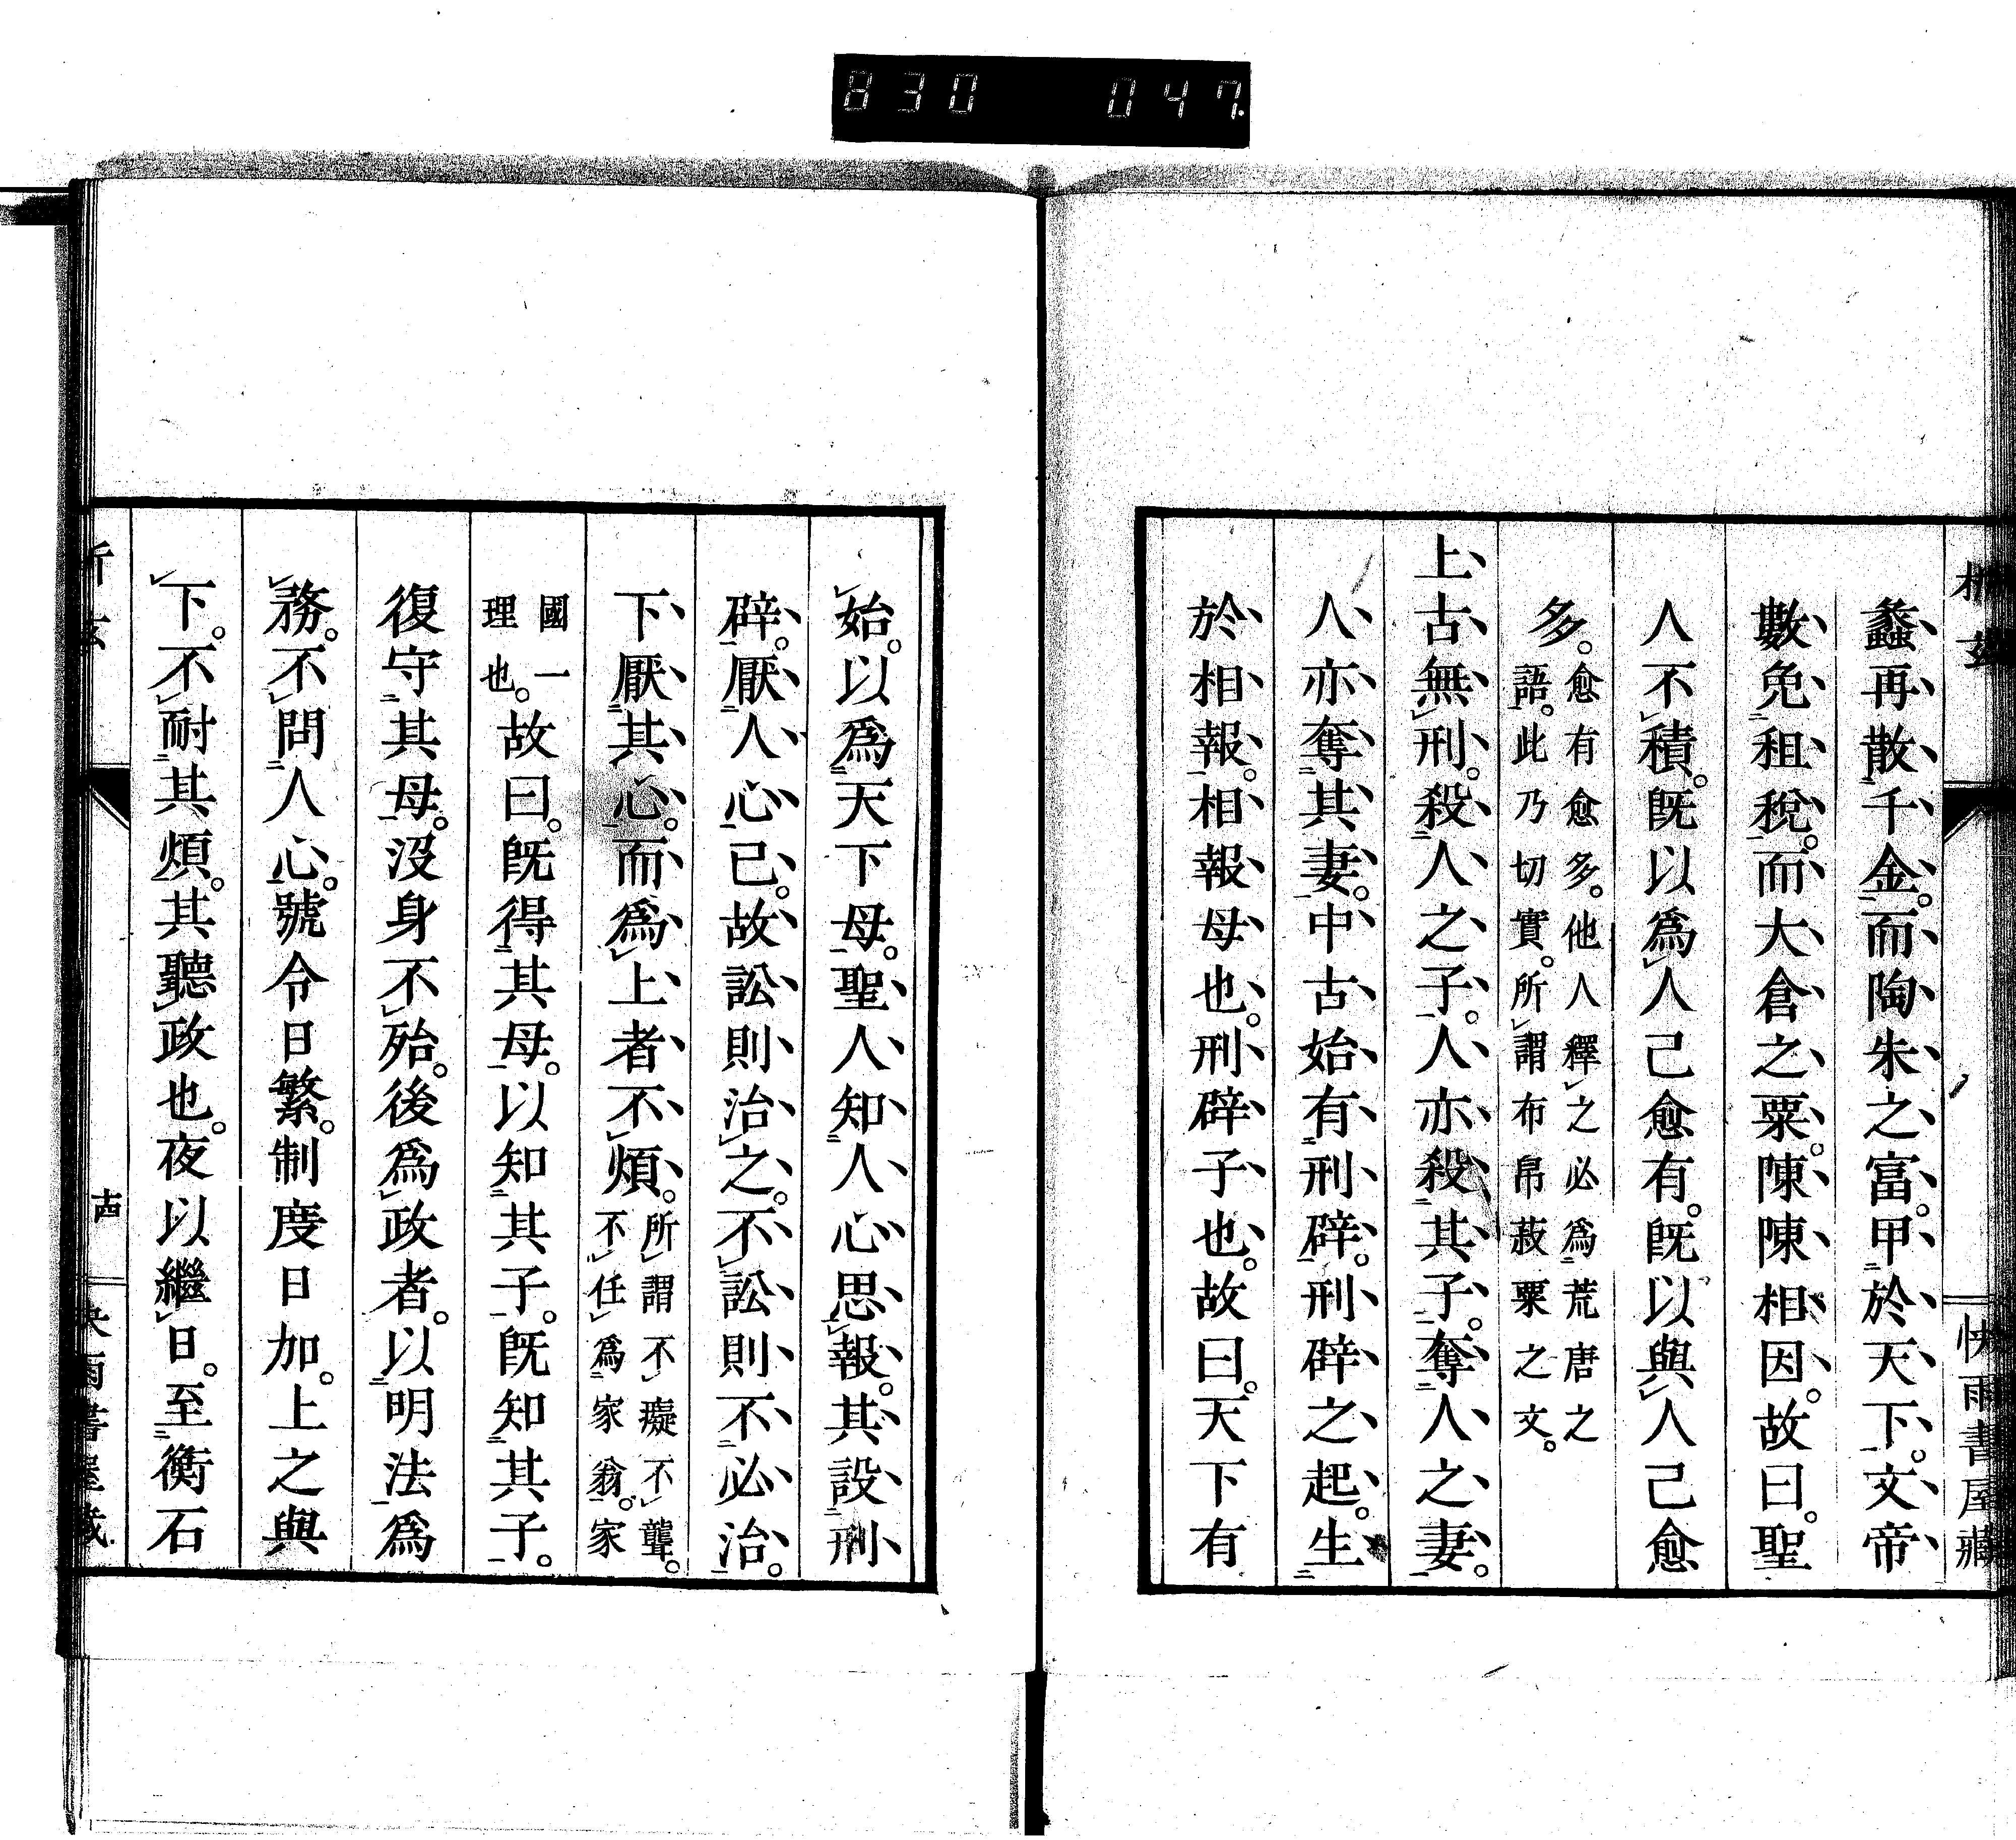 830 047
蠡再散千金。而陶朱之富。甲於天下。文帝
數免租稅。而大倉之粟。陳陳相因。故曰。聖
人不積。既以爲人己愈有。既以與人己愈
多。愈有愈多。他人釋之必爲荒唐之
語。此乃切實。所謂布帛菽粟之文。
上古無刑。殺人之子。人亦殺其子。奪人之妻。
人亦奪其妻。中古始有刑辟。刑辟之起。生
於相報。相報母也。刑辟子也。故曰。天下有
快雨書屋藏
始。以爲天下母。聖人知人心思報。其設刑
辟。厭人心已。故訟則治之。不訟則不必治。
下厭其心。而爲上者不煩。所謂不癡不聾。
不任爲家翁。家
國一
理也。故曰。既得其母。以知其子。既知其子。
復守其母。沒身不殆。後爲政者。以明法爲
務。不問人心。號令日繁。制度日加。上之與
下。不耐其煩。其聽政也。夜以繼日。至衡石